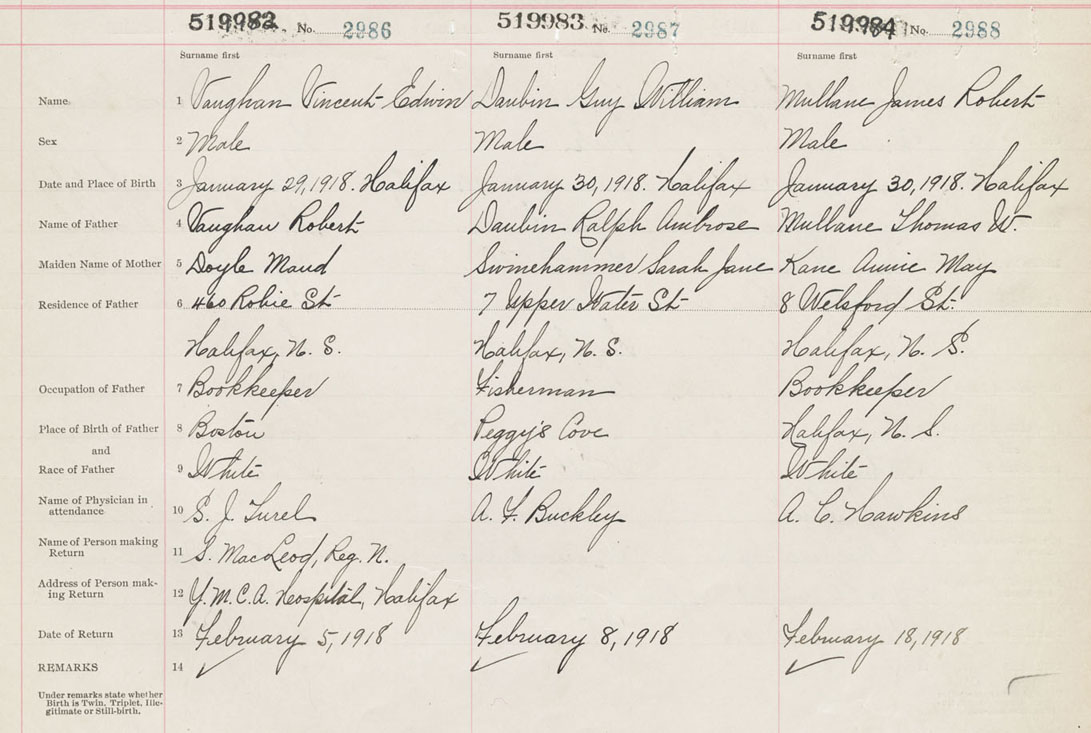 519982 No. 2986 519983 No. 2987 519984 No. 2988
Surname first Surname first Surname first
Name. 1 Vaughan Vincent Edwin Daubin Guy William Mullane James Robert
Sex 2 Male Male Male
Date and Place of Birth 3 January 29, 1918. Halifax January 30, 1918. Halifax January 30, 1918. Halifax
Name of Father 4 Vaughan Robert Daubin Ralph Ambrose Mullane Thomas W.
Maiden Name of Mother 5 Doyle Maud Swinehammer Sarah Jane Kane Annie May
Residence of Father 6 460 Robie St 7 Upper Water St 8 Welsford St.
Halifax, N. S. Halifax, N. S. Halifax, N. S.
Occupation of Father 7 Bookkeeper Fisherman Bookkeeper
Place of Birth of Father 8 Boston Peggy's Cove Halifax, N. S.
and
Race of Father 9 White White White
Name of Physician in
attendance 10 S. J. Turel A. F. Buckley A. C. Hawkins
Name of Person making
Return 11 S. MacLeod, Reg. N.
Address of Person mak-
ing Return 12 Y.M.C.A. Hospital, Halifax
Date of Return 13 February 5, 1918 February 8, 1918 February 18, 1918
REMARKS 14
Under remarks state whether
Birth is Twin, Triplet, Ille-
gitimate or Still-birth.